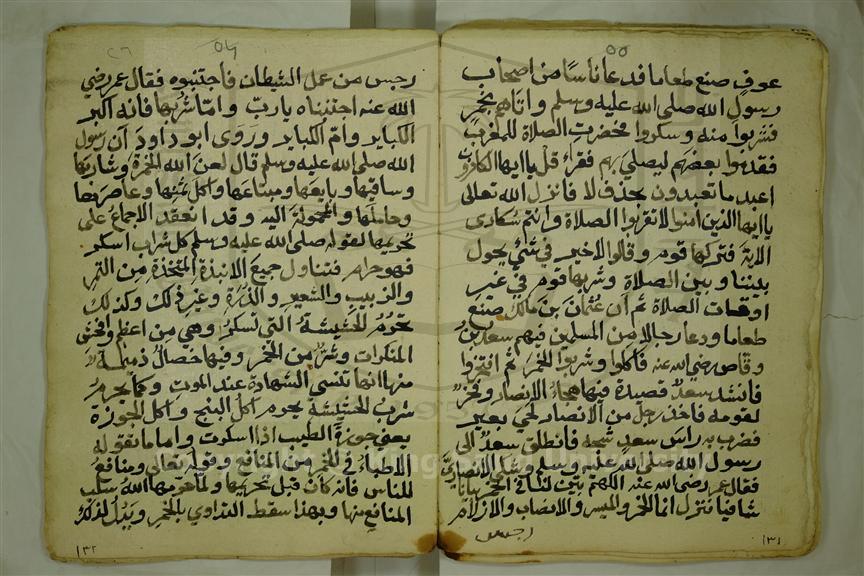 ٥٥
عوف صنع طعاما فدعا ناسا من اصحاب
رسول الله صلى الله عليه وسلم واتاهم بخمر
فشربوا منه وسكروا فحضرت الصلاة للمغرب
فقدموا بعضهم ليصلي بهم فقرا قل يا ايها الكافرون
اعبد ما تعبدون بحذف لا فانزل الله تعالى
يا ايها الذين امنوا لا تقربوا الصلاة وانتم سكارى
الاية فتركها قوم وقالوا لا خير في شئ يحول
بيننا وبين الصلاة وشربها قوم في غير
اوقات الصلاة ثم ان عثمان بن مالك صنع
طعاما ودعا رجالا من المسلمين فيهم سعد بن
وقاص رضي الله عنه فاكلوا وشربوا الخمر ثم افتخروا
فانشد سعد قصيدة فيها هجاء الانصار وفخر
لقومه فاخذ رجل من الانصار لحي بعير
فضرب به راس سعد شجه فانطلق سعد الى
رسول الله صلى الله عليه وسلم وشكى الانصاري
فقال عمر رضي الله عنه اللهم بين لنا في الخمر بيانا
شافيا فنزل انما الخمر والميسر والانصاب والازلام
رجس
١٣١
٥٦
رجس من عمل الشيطان فاجتنبوه فقال عمر رضي
الله عنه اجتنبناه يارب وامّا شربها فانه اكبر
الكباير وامّ الكباير وروى ابو داود ان رسول
الله صلى الله عليه وسلم قال لعن الله الخمرة وشاربها
وساقيها وبايعها ومبتاعها واكل ثمنها وعاصرها
وحاملها والمحمولة اليه وقد انعقد الاجماع على
تحريمها لقوله صلى الله عليه وسلم كل شراب اسكر
فهو حرام فتناول جميع الانبذة المتخذة من التمر
والزبيب والشعير والذرة وغير ذلك وكذلك
تحرم الحشيشة التي تسكر وهي من اعظم وافحش
المنكرات وشر من الخمر وفيها خصال ذميمة
منها انها تنسى الشهادة عند الموت وكما يحرم
شرب الحشيشة يحرم اكل البنج واكل الجوزة
يعني جوزة الطيب اذا اسكرت واما ما تقوله
الاطباء في الخمر من المنافع وقوله تعالى ومنافع
للناس فانه كان قبل تحريمها ولما حرمها الله سلب
المنافع منها وبهذا سقط التداوي بالخمر ويدل لذلك
١٣٢